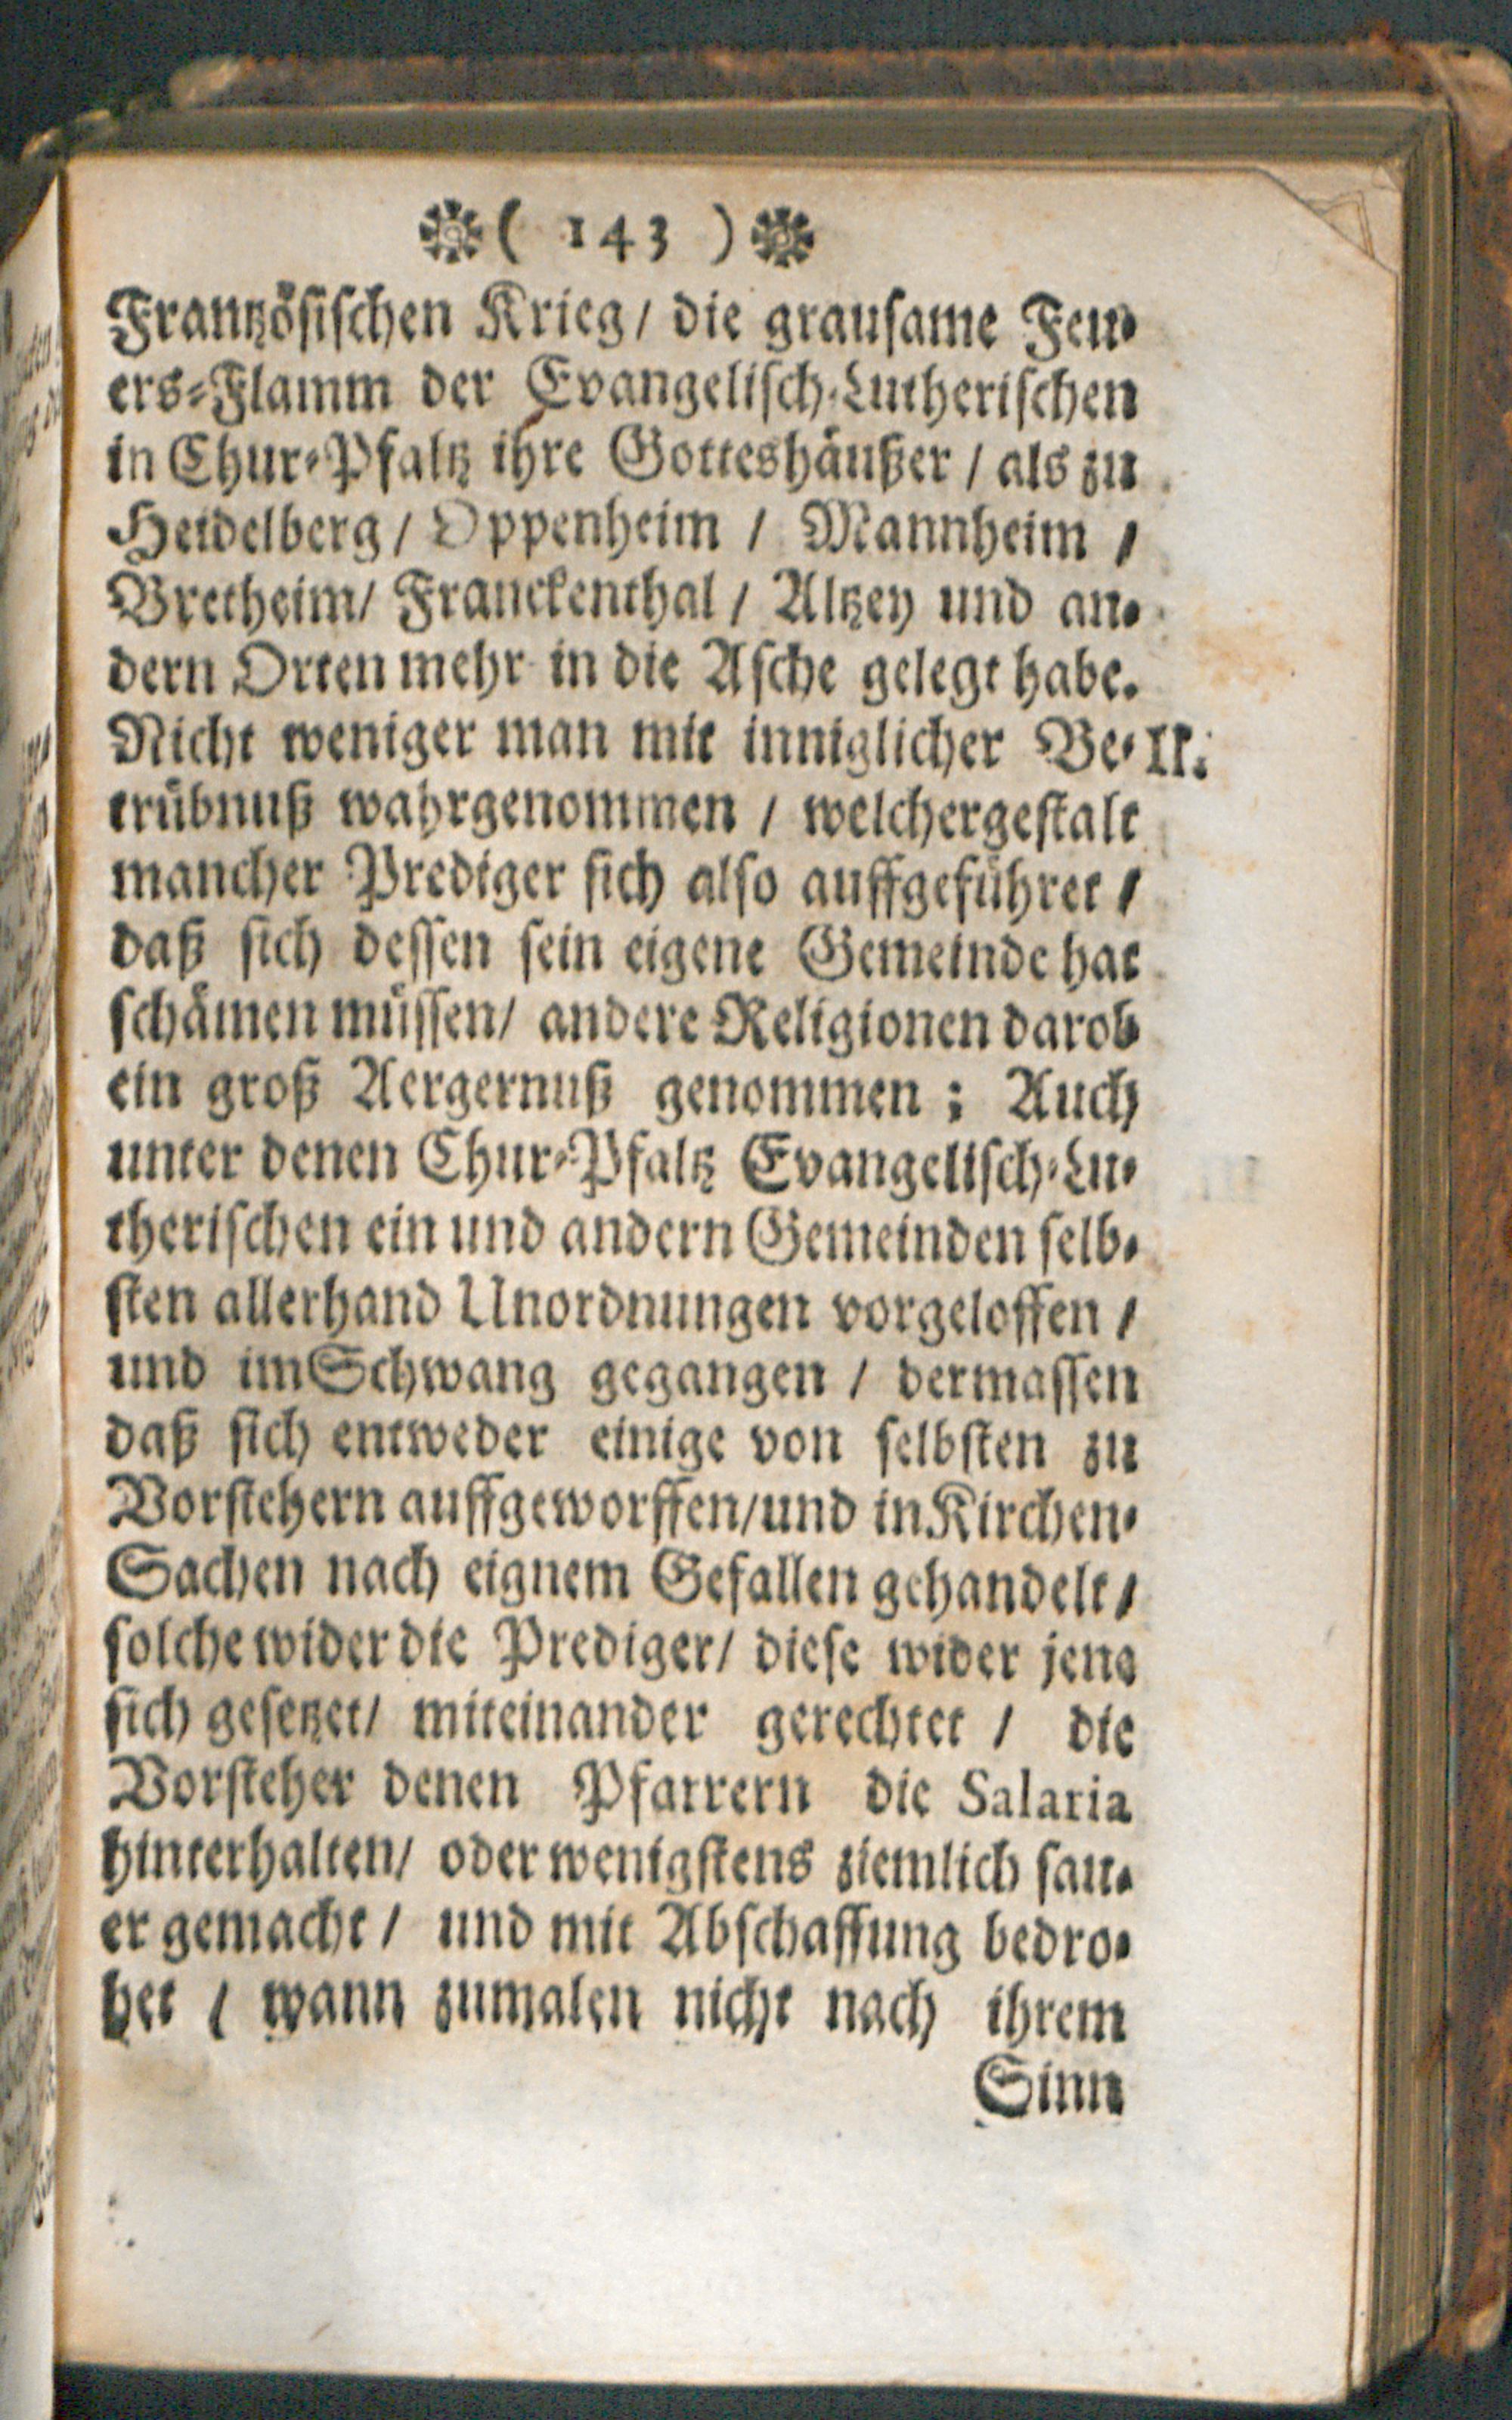 ( 143 )
Frantzösischen Krieg / die grausame Feu-
ers-Flamm der Evangelisch-Lutherischen
in Chur-Pfaltz ihre Gotteshäußer / als zu
Heidelberg / Oppenheim / Mannheim /
Bretheim / Franckenthal / Altzey und an-
dern Orten mehr in die Asche gelegt habe.
Nicht weniger man mit inniglicher Be- II.
trübnuß wahrgenommen / welchergestalt
mancher Prediger sich also auffgeführet /
daß sich dessen sein eigene Gemeinde hat
schämen müssen / andere Religionen darob
ein groß Aergernuß genommen ; Auch
unter denen Chur-Pfaltz Evangelisch-Lu-
therischen ein und andern Gemeinden selb-
sten allerhand Unordnungen vorgeloffen /
und im Schwang gegangen / dermassen
daß sich entweder einige von selbsten zu
Vorstehern auffgeworffen / und in Kirchen-
Sachen nach eignem Gefallen gehandelt /
solche wider die Prediger / diese wider jene
sich gesetzet / miteinander gerechtet / die
Vorsteher denen Pfarrern die Salaria
hinterhalten / oder wenigstens ziemlich sau-
er gemacht / und mit Abschaffung bedro-
het / wann zumalen nicht nach ihrem
Sinn